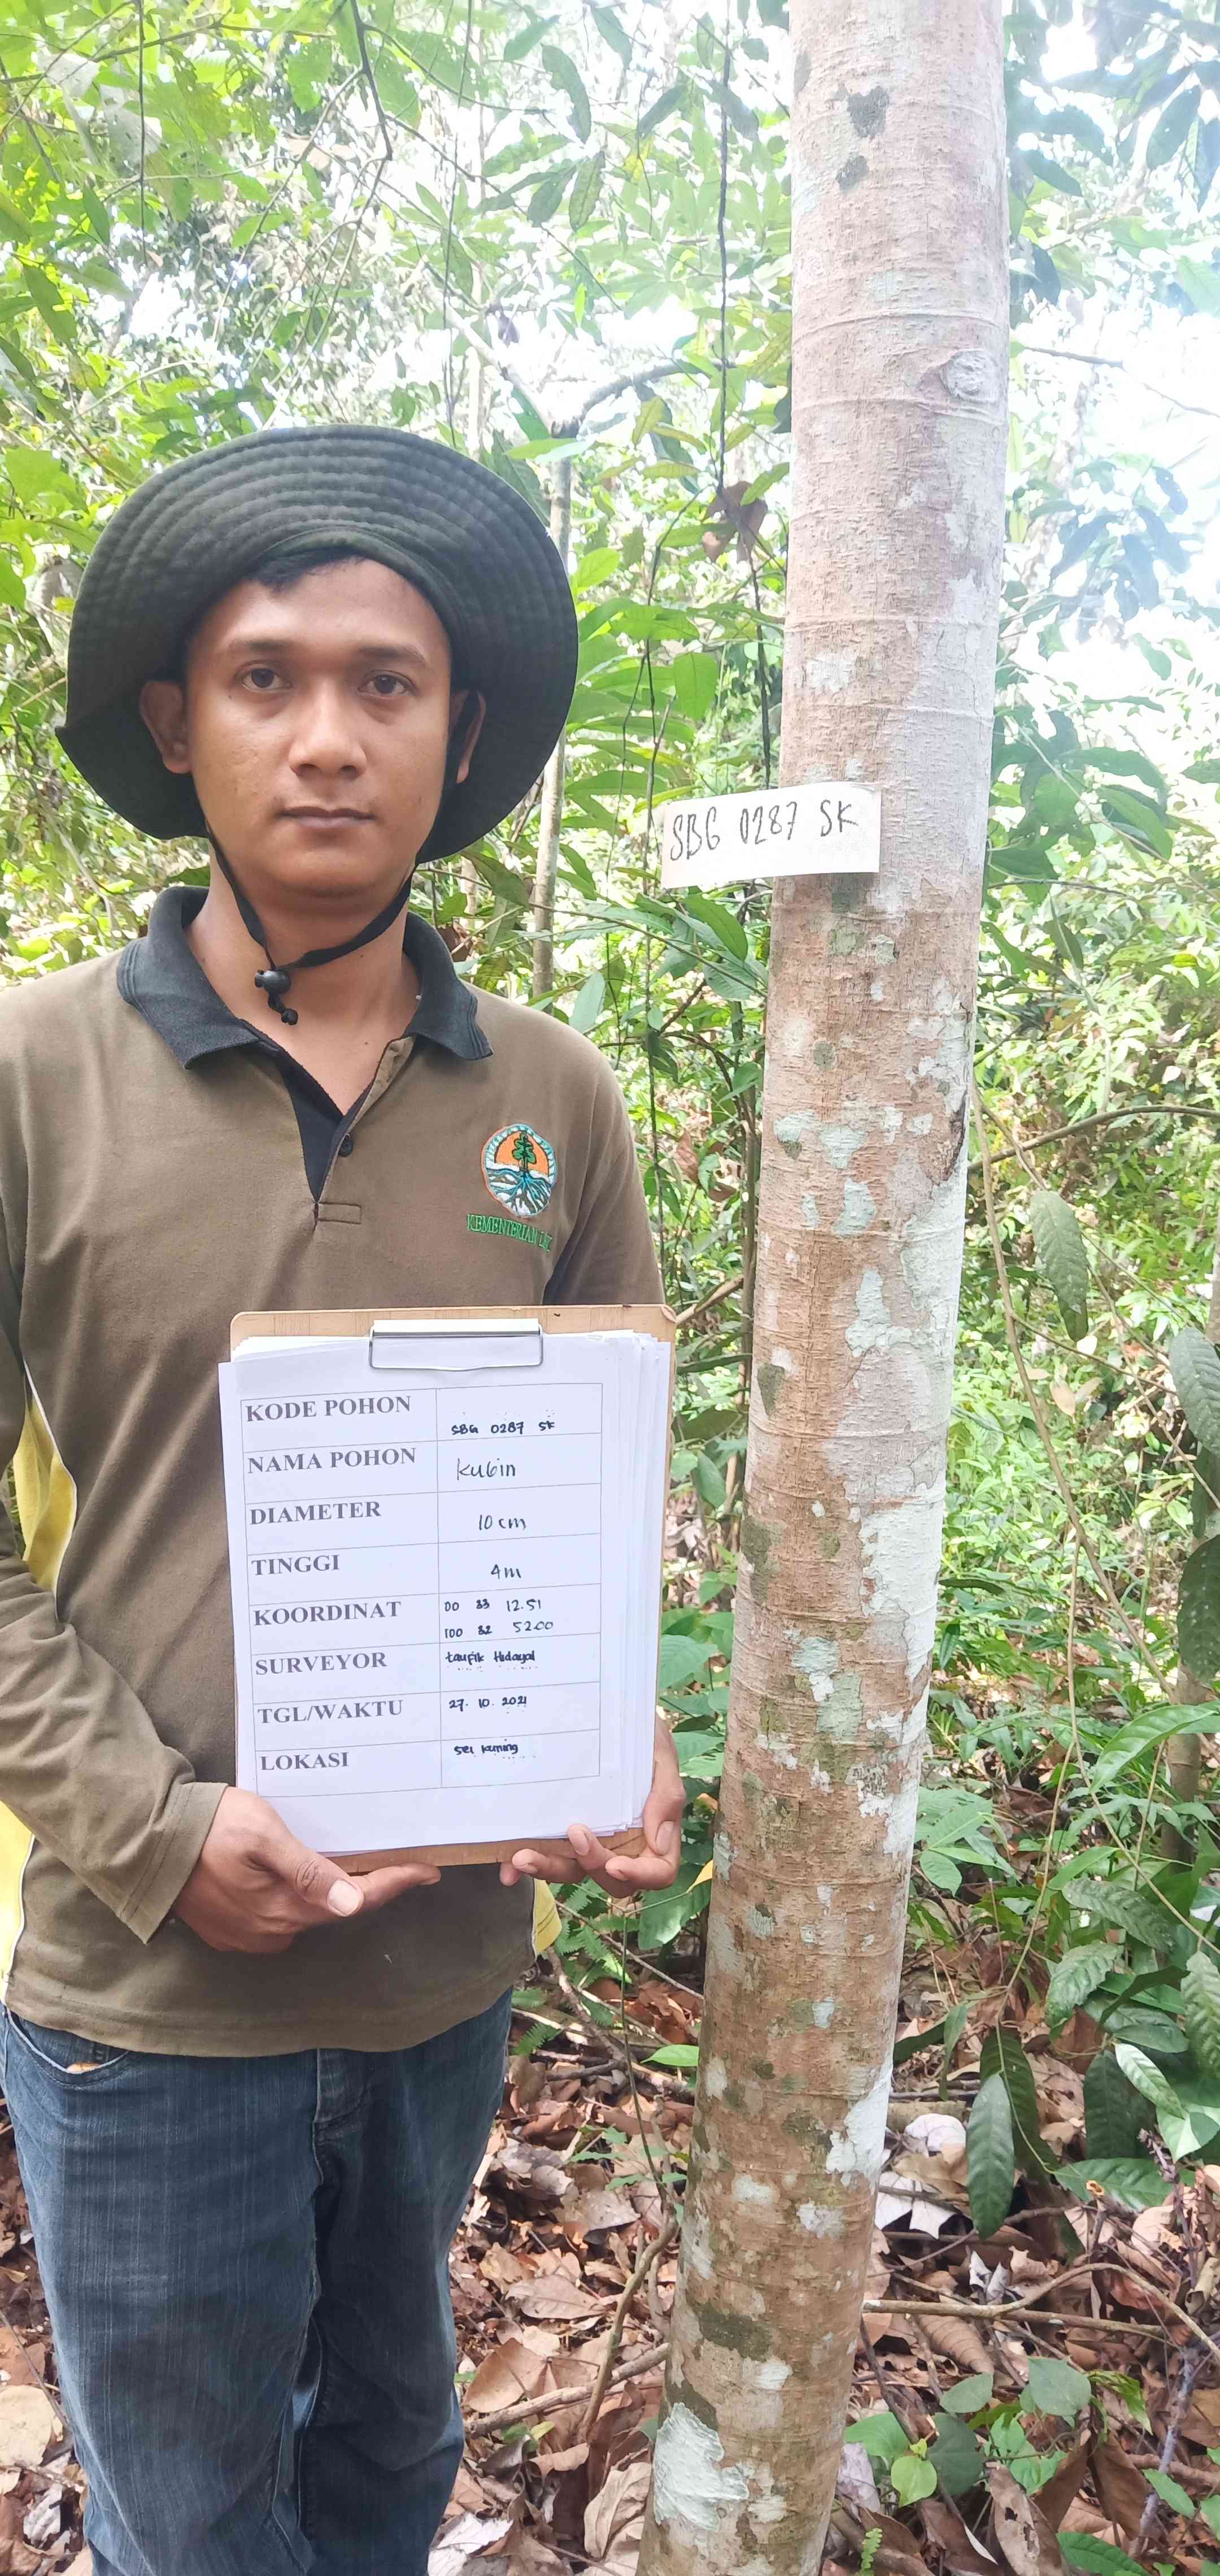 SBG 0287 SK
KEMENTERIAN
KODE POHON SBG 0287 SK
NAMA POHON Kubin
DIAMETER 10 cm
TINGGI 4m
KOORDINAT 00 33 12.51
100 32 52.00
SURVEYOR taufik Hidayat
TGL/WAKTU 27. 10. 2021
LOKASI sei kuning